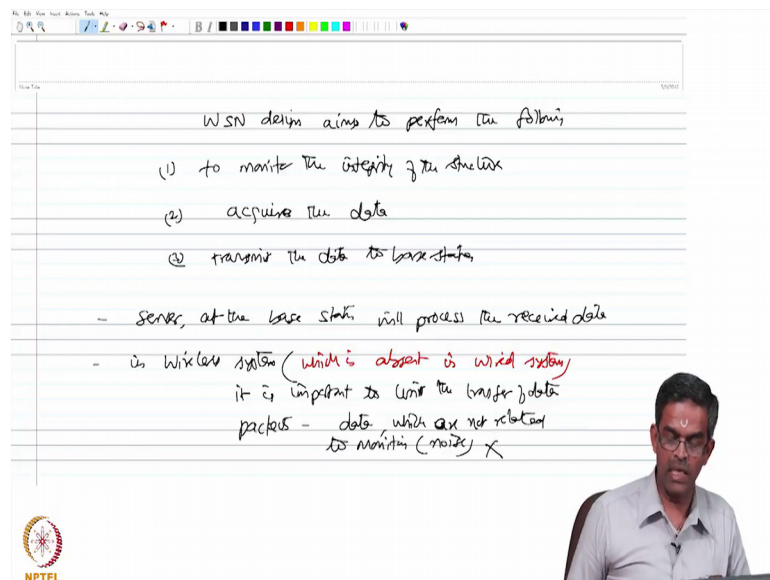 File Edit View Insert Actions Tools Help
B I
Note Title
WSN design aims to perform the following
(1) to monitor the integrity of the structure
(2) acquire the data
(3) transmit the data to base station
- server, at the base station will process the received data
- in wireless system (which is absent in wired system)
it is important to limit the transfer of data
packets - data, which are not related
to monitoring (noise) X
NPTEL